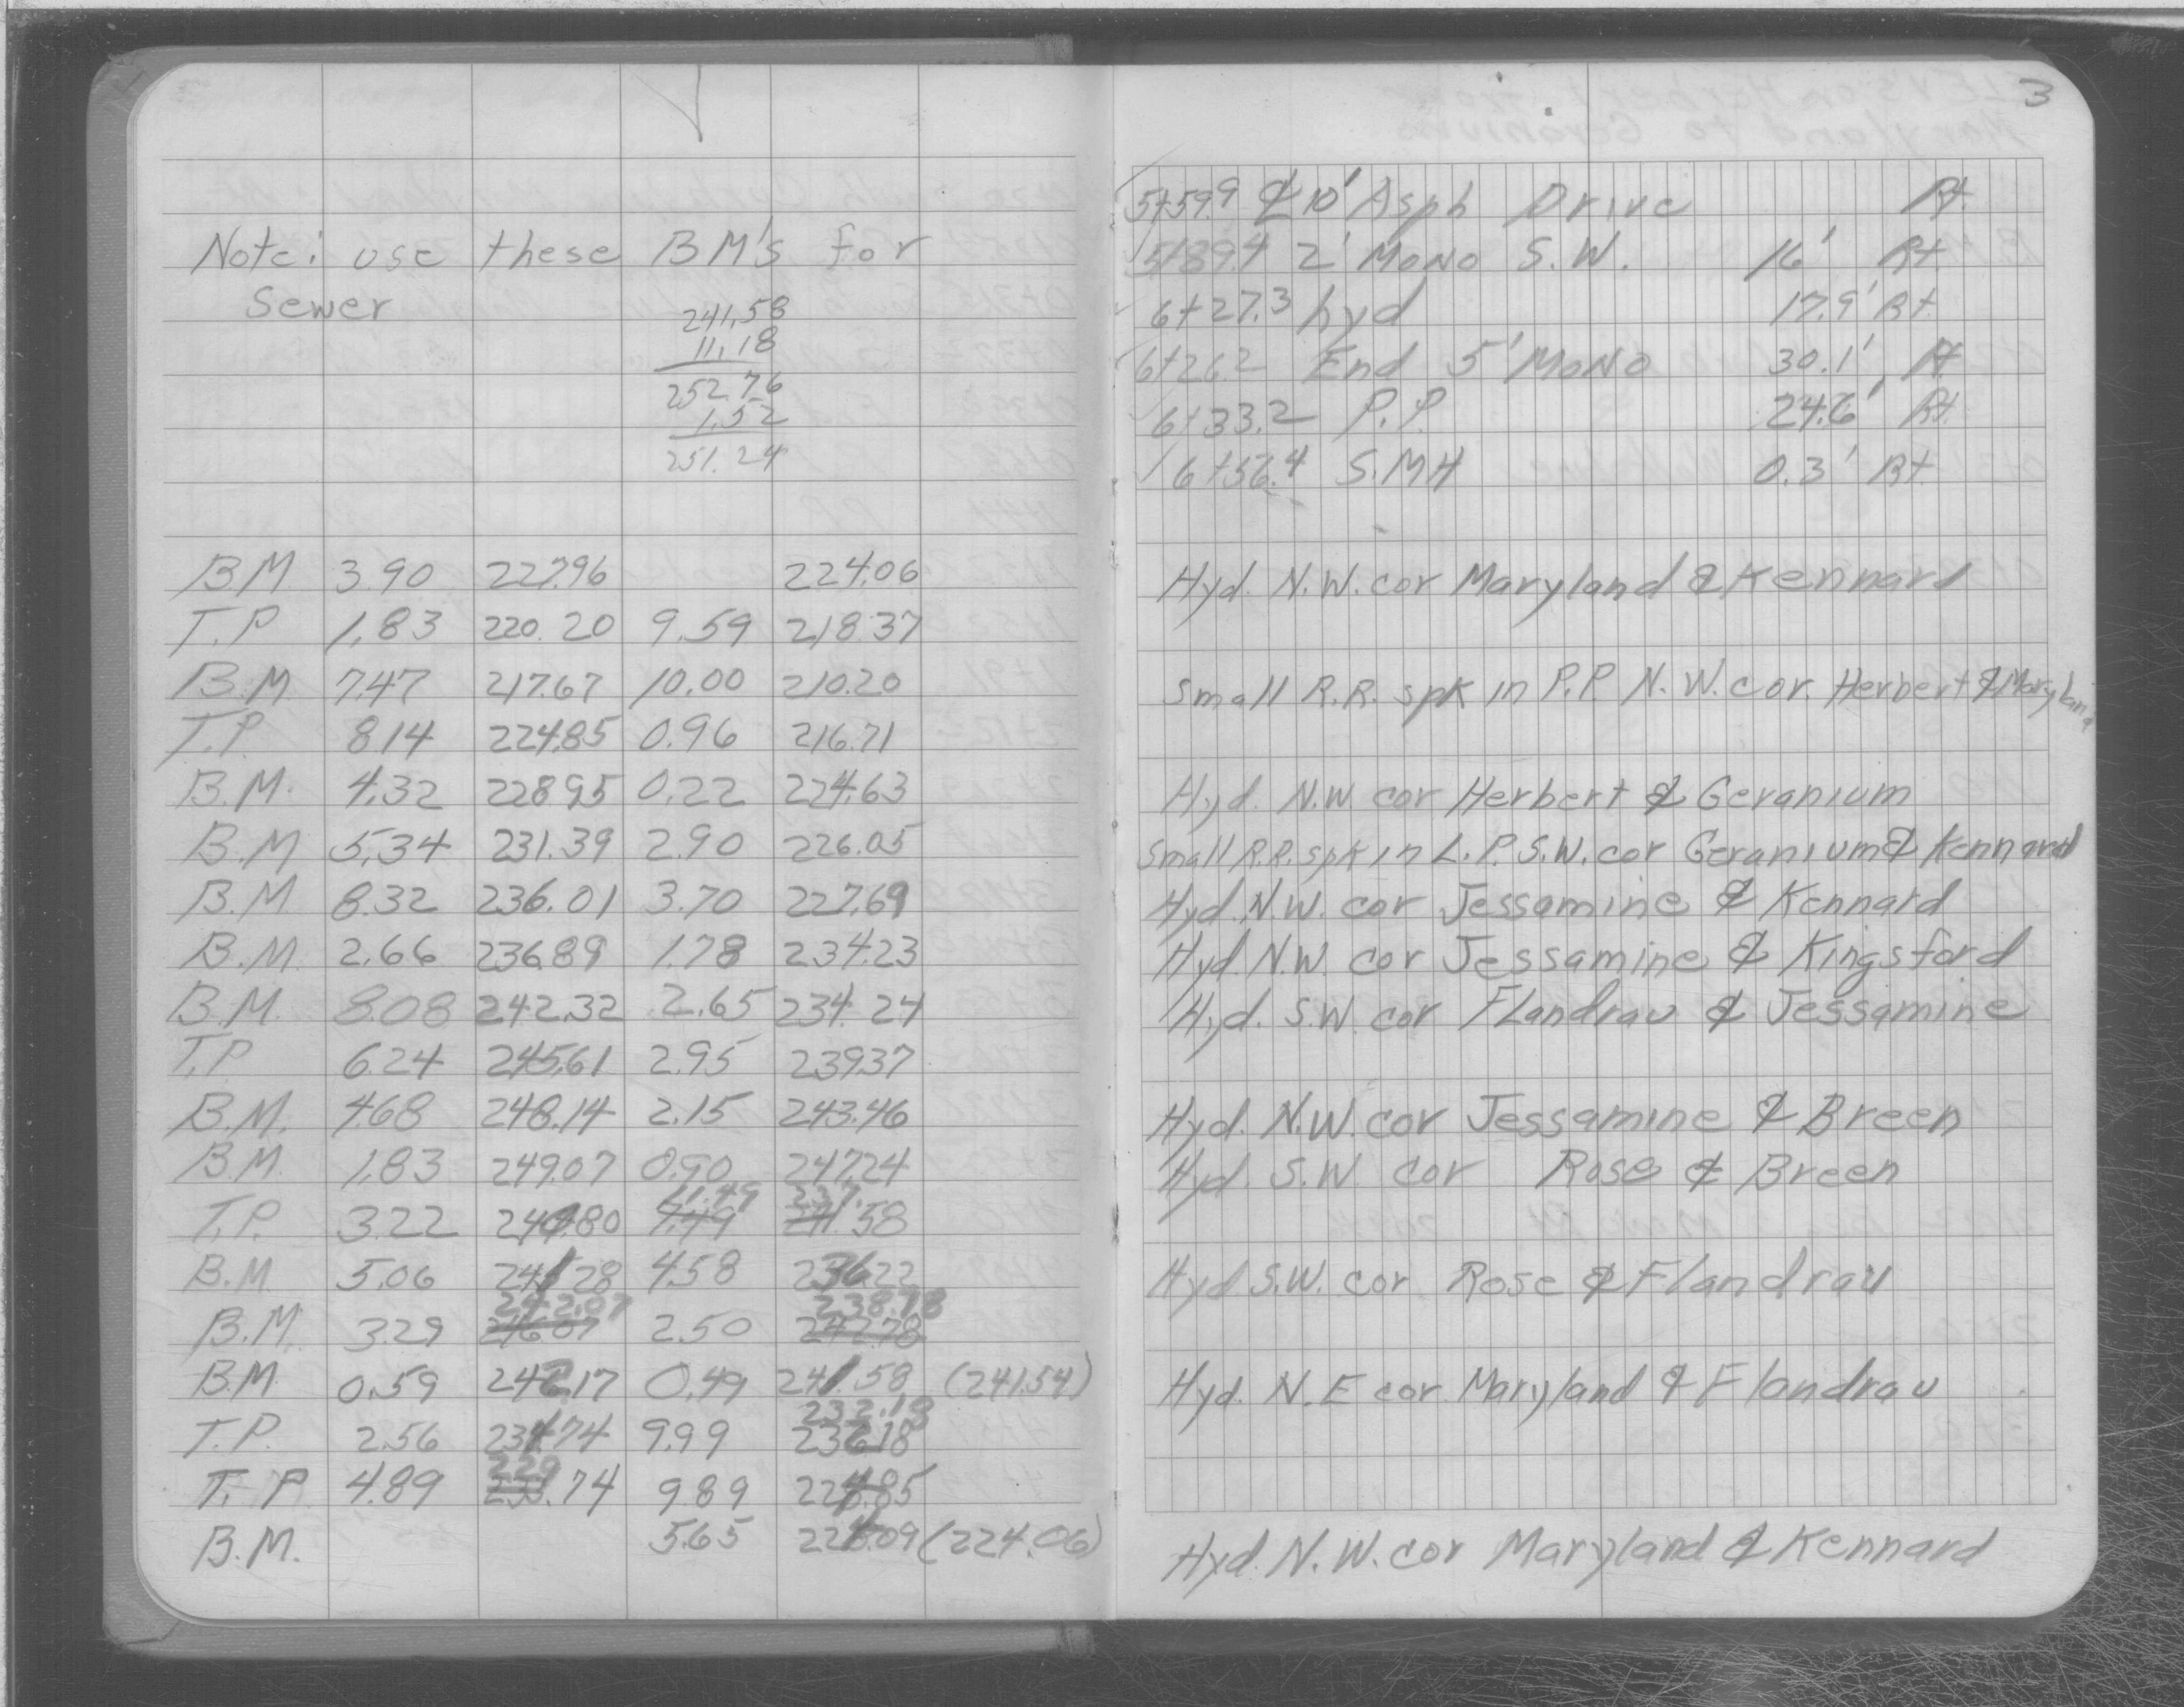 Note: use these BM's for
Sewer
241.58
11.18
252.76
1.52
251.24
B.M 3.90 227.96 224.06
T.P 1.83 220.20 9.59 218.37
B.M 7.47 217.67 10.00 210.20
T.P. 8.14 224.85 0.96 216.71
B.M. 4.32 228.95 0.22 224.63
B.M 5.34 231.39 2.90 226.05
B.M. 8.32 236.01 3.70 227.69
B.M. 2.66 236.89 1.78 234.23
B.M. 8.08 242.32 2.65 234.24
T.P 6.24 245.61 2.95 239.37
B.M. 4.68 248.14 2.15 243.46
B.M. 1.83 249.07 0.90 247.24
11.49 237.
T.P. 3.22 240.80 7.49 241.58
B.M. 5.06 241.28 4.58 236.22
242.07 238.78
B.M. 3.29 246.07 2.50 242.78
B.M. 0.59 242.17 0.49 241.58 (241.54)
232.18
T.P. 2.56 234.74 9.99 236.18
229
T.P 4.89 233.74 9.89 224.85
B.M. 5.65 224.09 (224.06)
3
5+59.9 ₵ 10' Asph Drive Rt.
5+89.4 2' MONO S.W. 16' Rt.
6+27.3 hyd 17.9' Rt.
6+26.2 End 5' MONO 30.1' Rt
6+33.2 P.P. 24.6' Rt.
6+56.4 S.MH 0.3' Rt.
Hyd. N.W. cor Maryland & Kennard
Small R.R. spk in P.P. N.W. cor. Herbert & Maryland
Hyd. N.W cor Herbert & Geranium
Small R.R. spk in L.P. S.W. cor Geranium & Kennard
Hyd. N.W. cor Jessamine & Kennard
Hyd. N.W. cor Jessamine & Kingsford
Hyd. S.W. cor Flandrau & Jessamine
Hyd. N.W. cor Jessamine & Breen
Hyd. S.W. cor Rose & Breen
Hyd S.W. cor Rose & Flandrau
Hyd. N.E cor. Maryland & Flandrau
Hyd. N.W. cor Maryland & Kennard